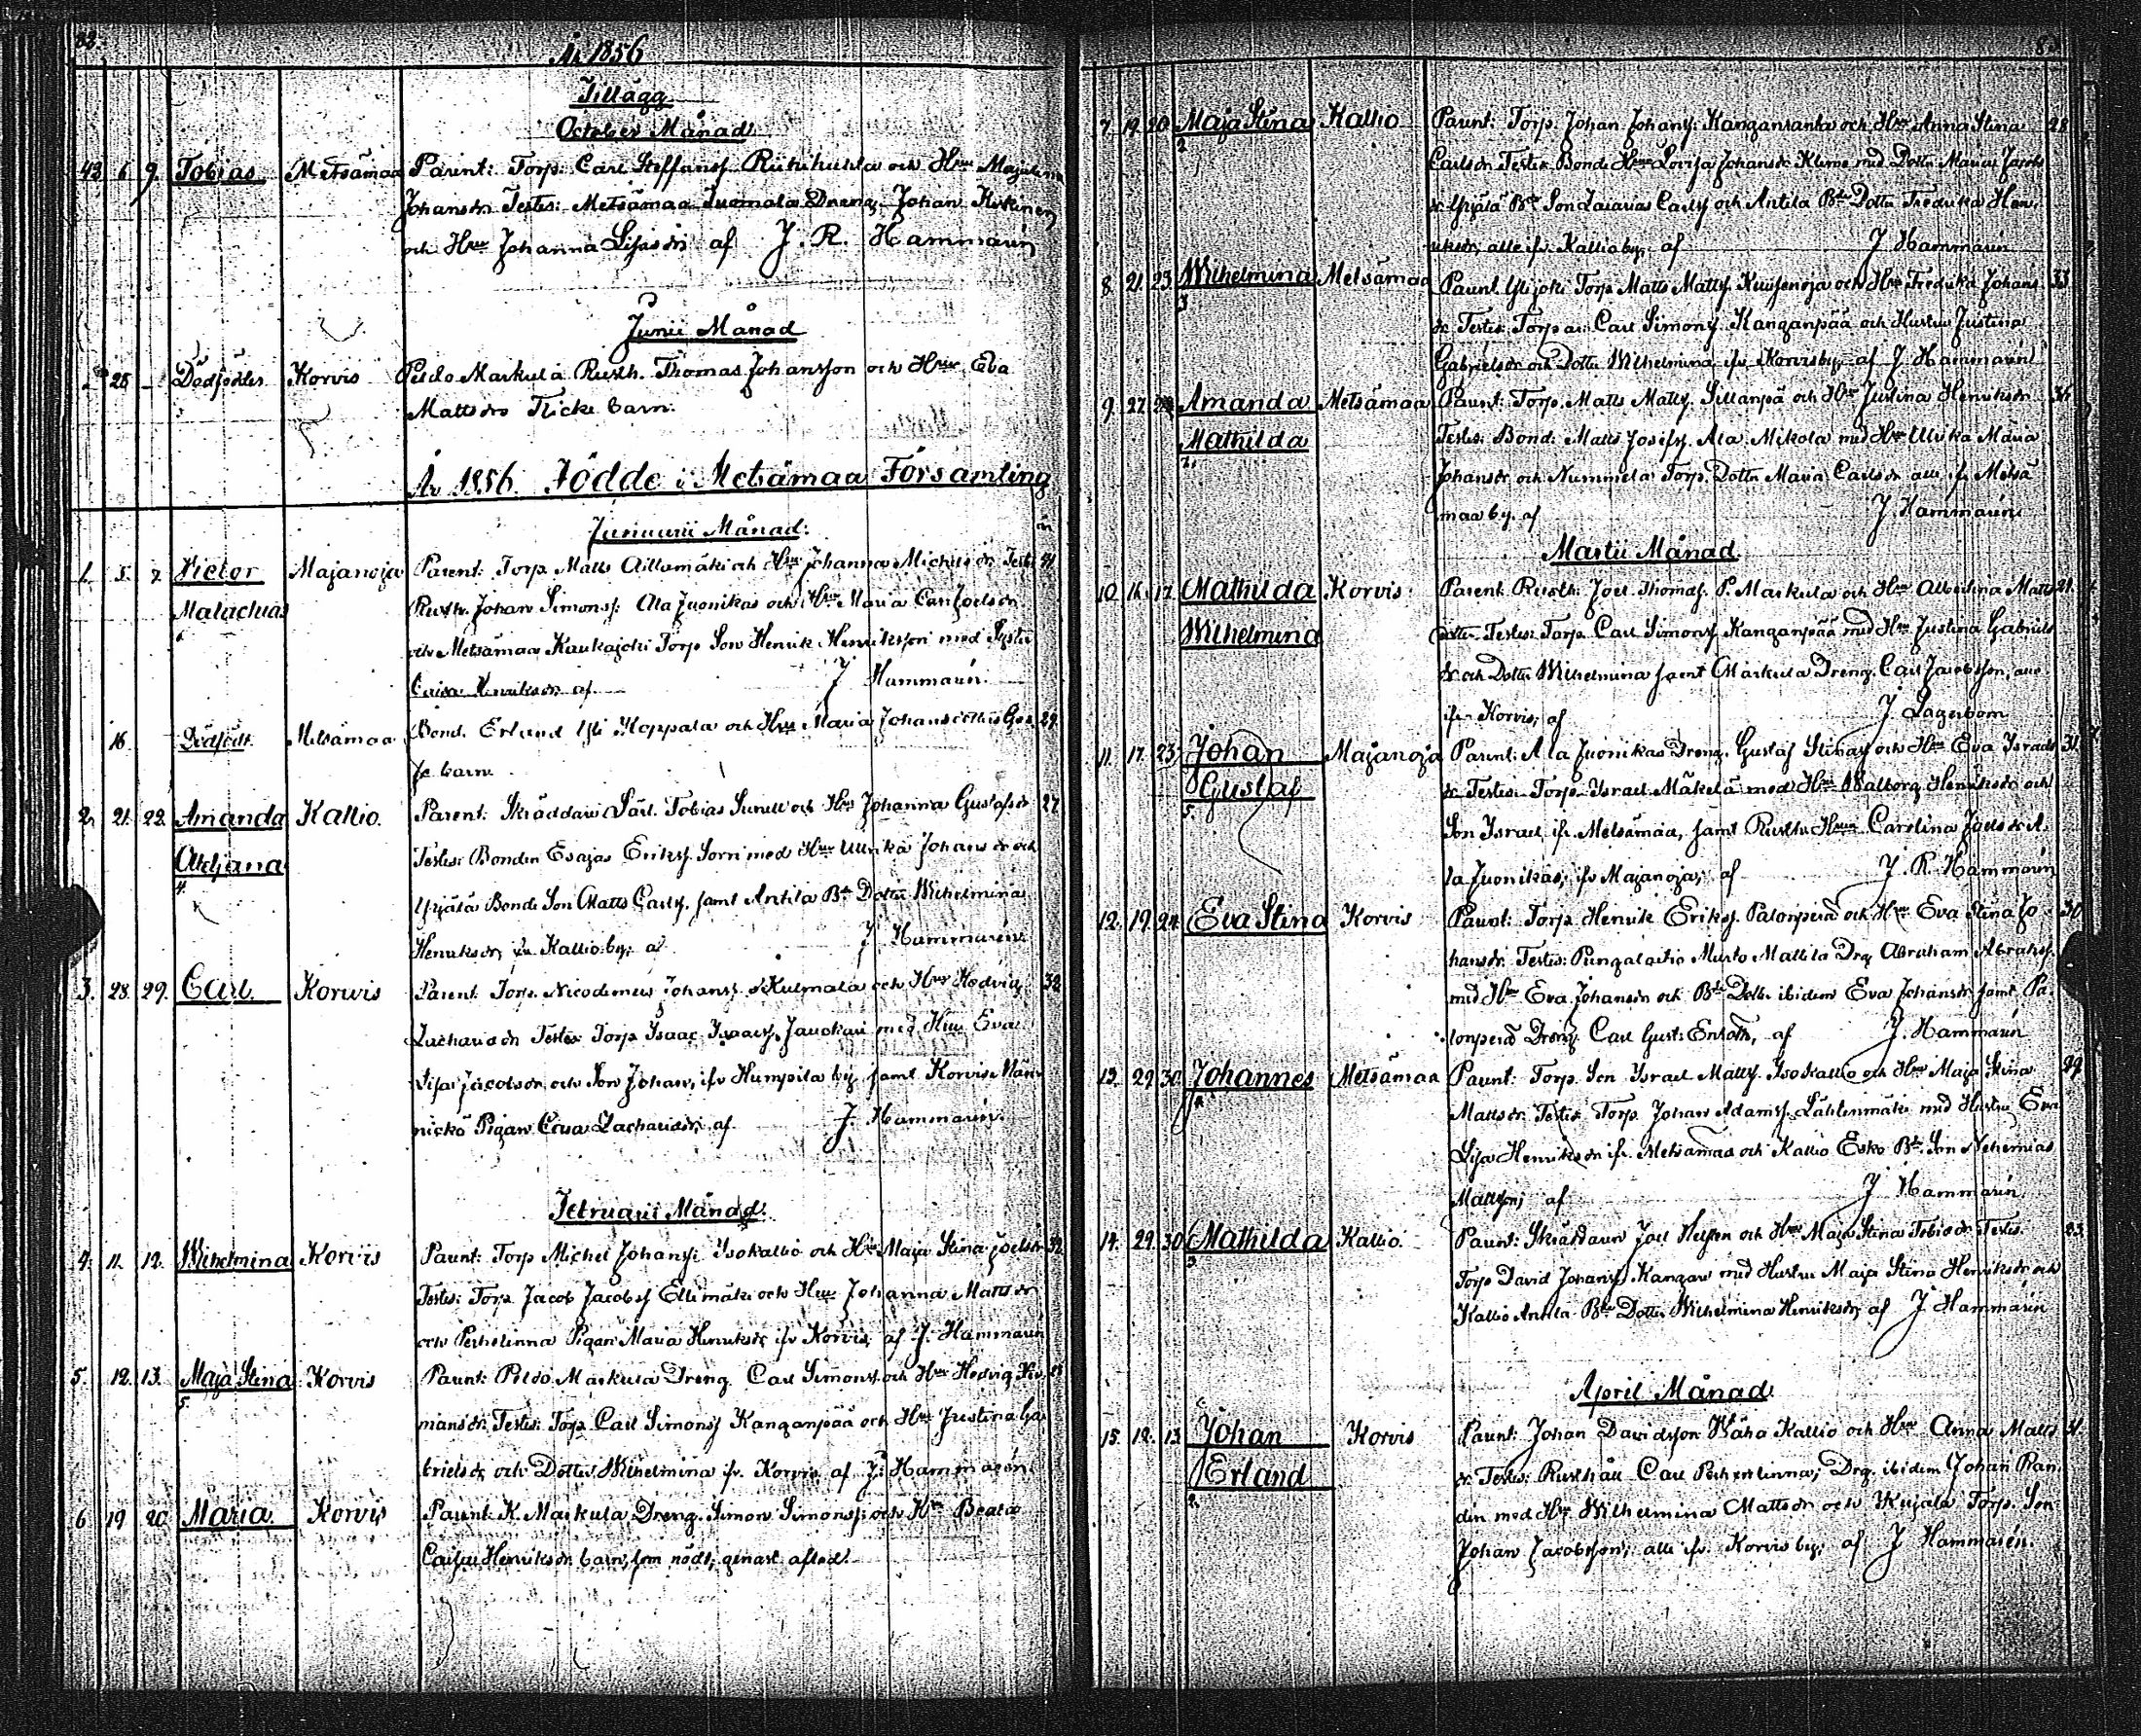 82.
År 1856
Tillägg
October Månad
43 6 9. Tobias Metsämaa Parent: Torp: Carl Steffanss. och Hru
Johansdr. Testes: Metsämaa Tuomala Dreng Johan
och Hru Johanna Lisasdr. af J. R. Hammarén
Junii Månad
25 Dödföddes Korvis Peldo Markula Rusth. Thomas Johansson och Hru Eva
Mattsdrs Flicke barn.
År 1856. Födde i Metsämaa Församling
Januarii Månad.
1. 5. 7. Victor Majanoja Parent: Torp. Matts och Hru Johanna Michelsdr. Testes 41
Malachias Rusth. Johan Simonss: Ala Juonikas och Hru Maria Joelsdr.
Metsämaa Kaukajoki Torp. Son Henrik Henriksson med Syster
Caisa Henriksdr. af J Hammarén.
16. Dödfödt. Metsämaa Bond. Erland Yli Koppala och Hru Maria Johansdotters 29.
se barn
2. 21. 22. Amanda Kallio. Parent: Skräddare Tobias och Hru Johanna Gustafsdr 27
Testes: Bonden Esajas Erikss. med Hru Ulrika Johansdr och
4. Yrjälä Bonde Son Matts Carlss. samt Antila Bde Dotter Wilhelmina
Henriksdr, ifr Kallio by. af J Hammarén
3. 28. 29. Carl Korvis Parent Torp. Nicodemus Johanss. och Hru Hedvig 32
Zachariasdr Testes Torp Isaac Isaacss. med Hru Eva
Lisa Jacobsdr, och Son Johan, ifr Humpila by samt Korvis
Pigan Zachariasdr, af J. Hammarén.
Februarii Månad.
4. 11. 12. Wilhelmina Korvis Parent: Torp Michel Johanss. Isokallio och Hru Maja Stina Joelsdr
Testes: Torp. Jacob Jacobss Ellimäki och Hru Johanna Mattsdr
och Perhelinna Pigan Maria Henriksdr ifr Korvis, af J. Hammarén
5. 12. 13. Maja Stina Korvis Parent: Peldo Markula Dreng. Carl Simonss. och Hru Hedvig Her-
5 mansdr. Testes: Torp. Carl Simonss Kanganpää och Hru Justina Ga-
brielsdr och Dotter Wilhelmina ifr. Korvis, af J. Hammarén
6 19 20 Maria Korvis Parent: K. Markula Dreng. Simon Simonss: och Hru Beata
Caisa Henriksdr. barn, som nödt; genast afled.
7. 19. 20 Maja Stina Kallio Parent: Torp. Johan Johanss: Kanganranta och Hru Anna Stina 28
2 Carlsdr. Testes Bonde Hru Lovisa Johansdr med Dotter Maria Jacobs-
dr Yrjälä Bde Son Zacarias Carlss och Antila Bde Dotter Fredrika Hen-
riksdr, alle ifr. Kallio by, af J Hammarén
8. 21. 23. Wilhelmina Metsämaa Parent: Ylijoki Torp. Matts Matts. Kuusenoja och Hru Fredrika Johans- 33
3 dr Testes: Torp. Carl Simonss. Kanganpää och Hustru Justina
Gabrielsdr och Dotter Wilhelmina ifr. Korvis by, af J Hammarén
9. 27. Amanda Metsämaa Parent: Torp. Matts Matts. Sillanpä och Hru Justina Henriksdr 36
Mathilda Testes: Bond. Matts Josefss. Ala Mikola med Hru Ulrika Maria
Johansdr och Nummela Torp. Dotter Maria Carlsdr alle ifr Metsä
maa by, af J. Hammarén
Martii Månad.
10. 16. 17. Mathilda Korvis Parent: Rusth: Joel Thomass. P. Markula och Hru Albertina Matts 21.
Wilhelmina dotter. Testes: Torp. Carl Simonss Kanganpää med Hru Justina Gabriels-
dr och Dotter Wilhelmina samt Markula Dreng. Carl Jacobsson, alle
ifr Korvis, af J Lagerbom
11. 17. 23. Johan Majanoja Parent: Ala Juonikas Dreng. Gustaf och Hru Eva Israels- 31.
Gustaf dr Testes: Torp. Israel Mäkelä med Hru Walborg Henriksdr och
5. Son Israel, ifr. Metsämaa, samt Rusth: Hru Carolina Joelsdr A-
la Juonikas, ifr Majanoja; af J. R. Hammarén
12. 19. 24. Eva Stina Korvis Parent: Torp Henrik Erikss. Palonperä och Hru Eva Stina Jo- 30
hansdr. Testes: Mattila Drg Abraham Abrahss.
med Hru Eva Johansdr och Bde Dotter ibidem Eva Johansdr samt Pa-
lonperä Dreng. Carl Gust: af J. Hammarén
13. 29. 30. Johannes Metsämaa Parent: Torp. Son Israel Matts. Isokallio och Hru Maja Stina 29
Mattsdr. Testes Torp. Johan Adamss. Lähtenmäki med Hustru Eva
Lisa Henriksdr ifr. Metsämaa och Kallio Esko Bde Son Nehemias
Mattsson, af J Hammarén
14. 29. 30. Mathilda Kallio. Parent: Skräddaren Joel och Hru Maja Stina Tobiasdr Testes: 23.
3. Torp David Johanss. Kangas med Hustru Maja Stina Henriksdr och
Kallio Antila Bde Dotter Wilhelmina Henriksdr, af J Hammarén
April Månad.
15. 12. 13. Johan Korvis Parent: Johan Davidsson Wähä Kallio och Hru Anna Matts- 31.
Erland dr. Testes: Rusthåll Carl Drg. ibidem Johan Ran-
2. din med Hru Wilhelmina Mattsdr och Kujala Torp. Son
Johan Jacobsson; alle ifr. Korvis by; af J Hammarén.